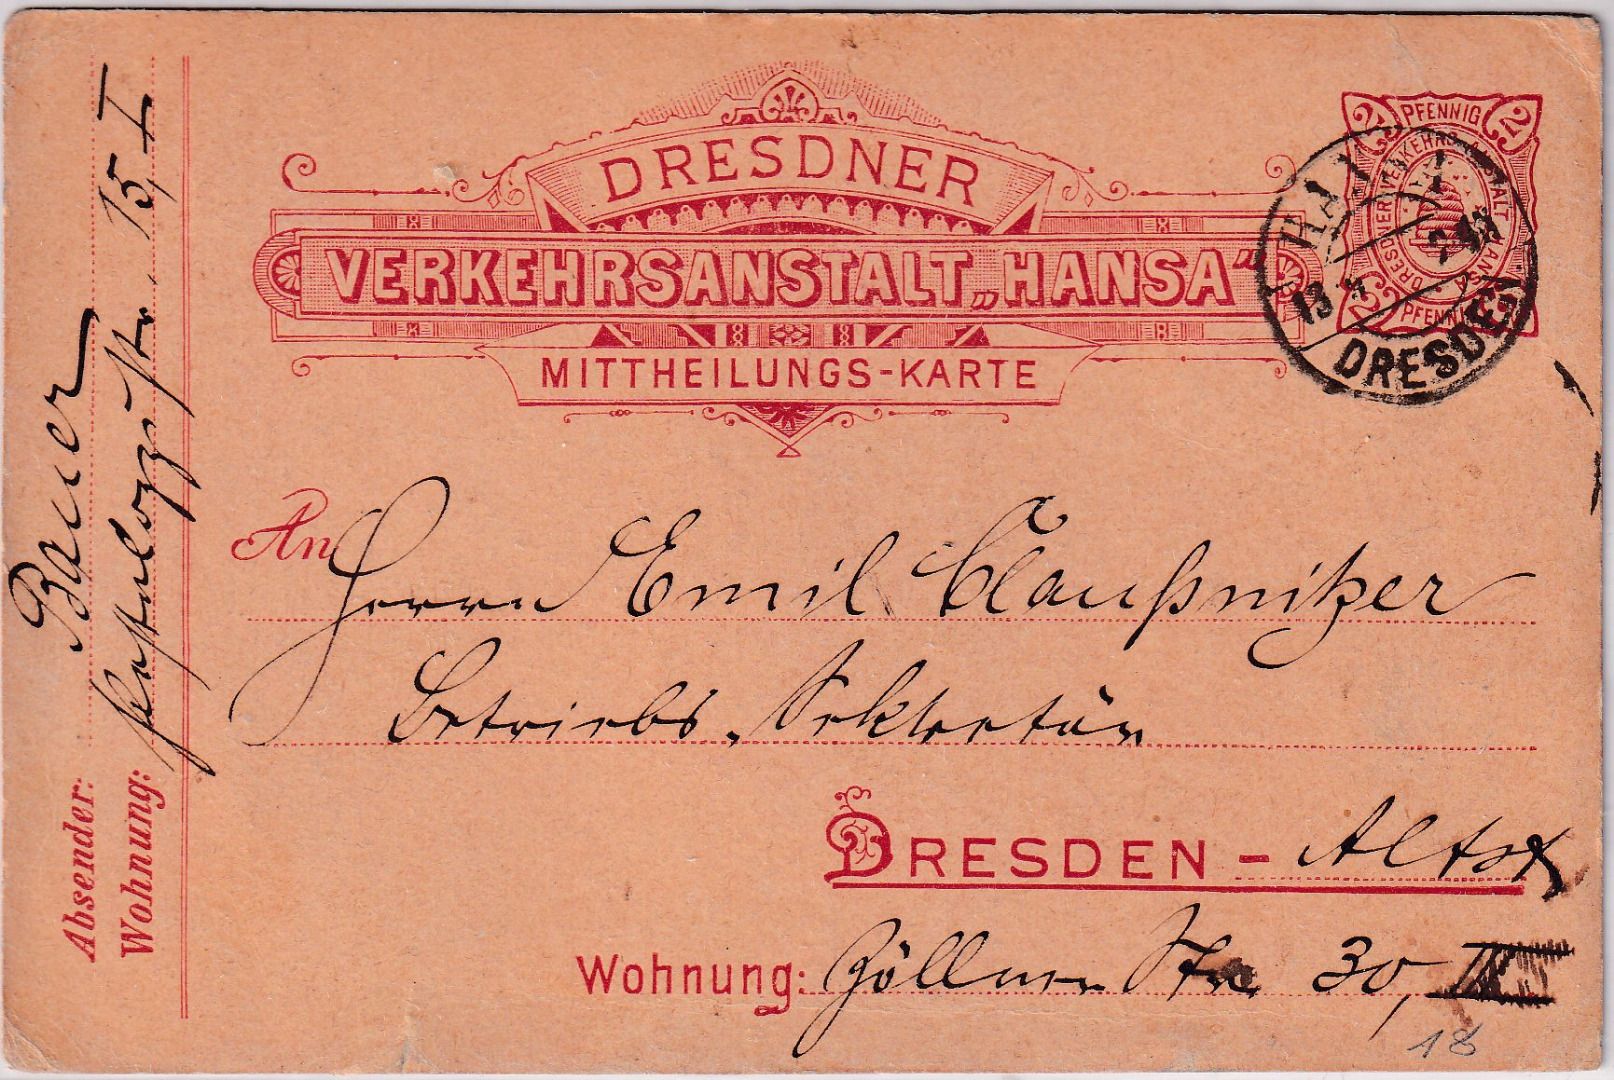 DRESDNER
VERKEHRSANSTALT „HANSA“
MITTHEILUNGS-KARTE
2 PFENNIG 2
DRESDNER VERKEHRS-ANSTALT HANSA
2 PFENNIG
HANSA
13
DRESDEN
An Herrn Emil Claußnitzer
Betriebs-Sekretär
DRESDEN - Altst
Wohnung: Zöllner Str. 30, II
18
Absender: Bauer
Wohnung: Pestalozzistr. 15, I